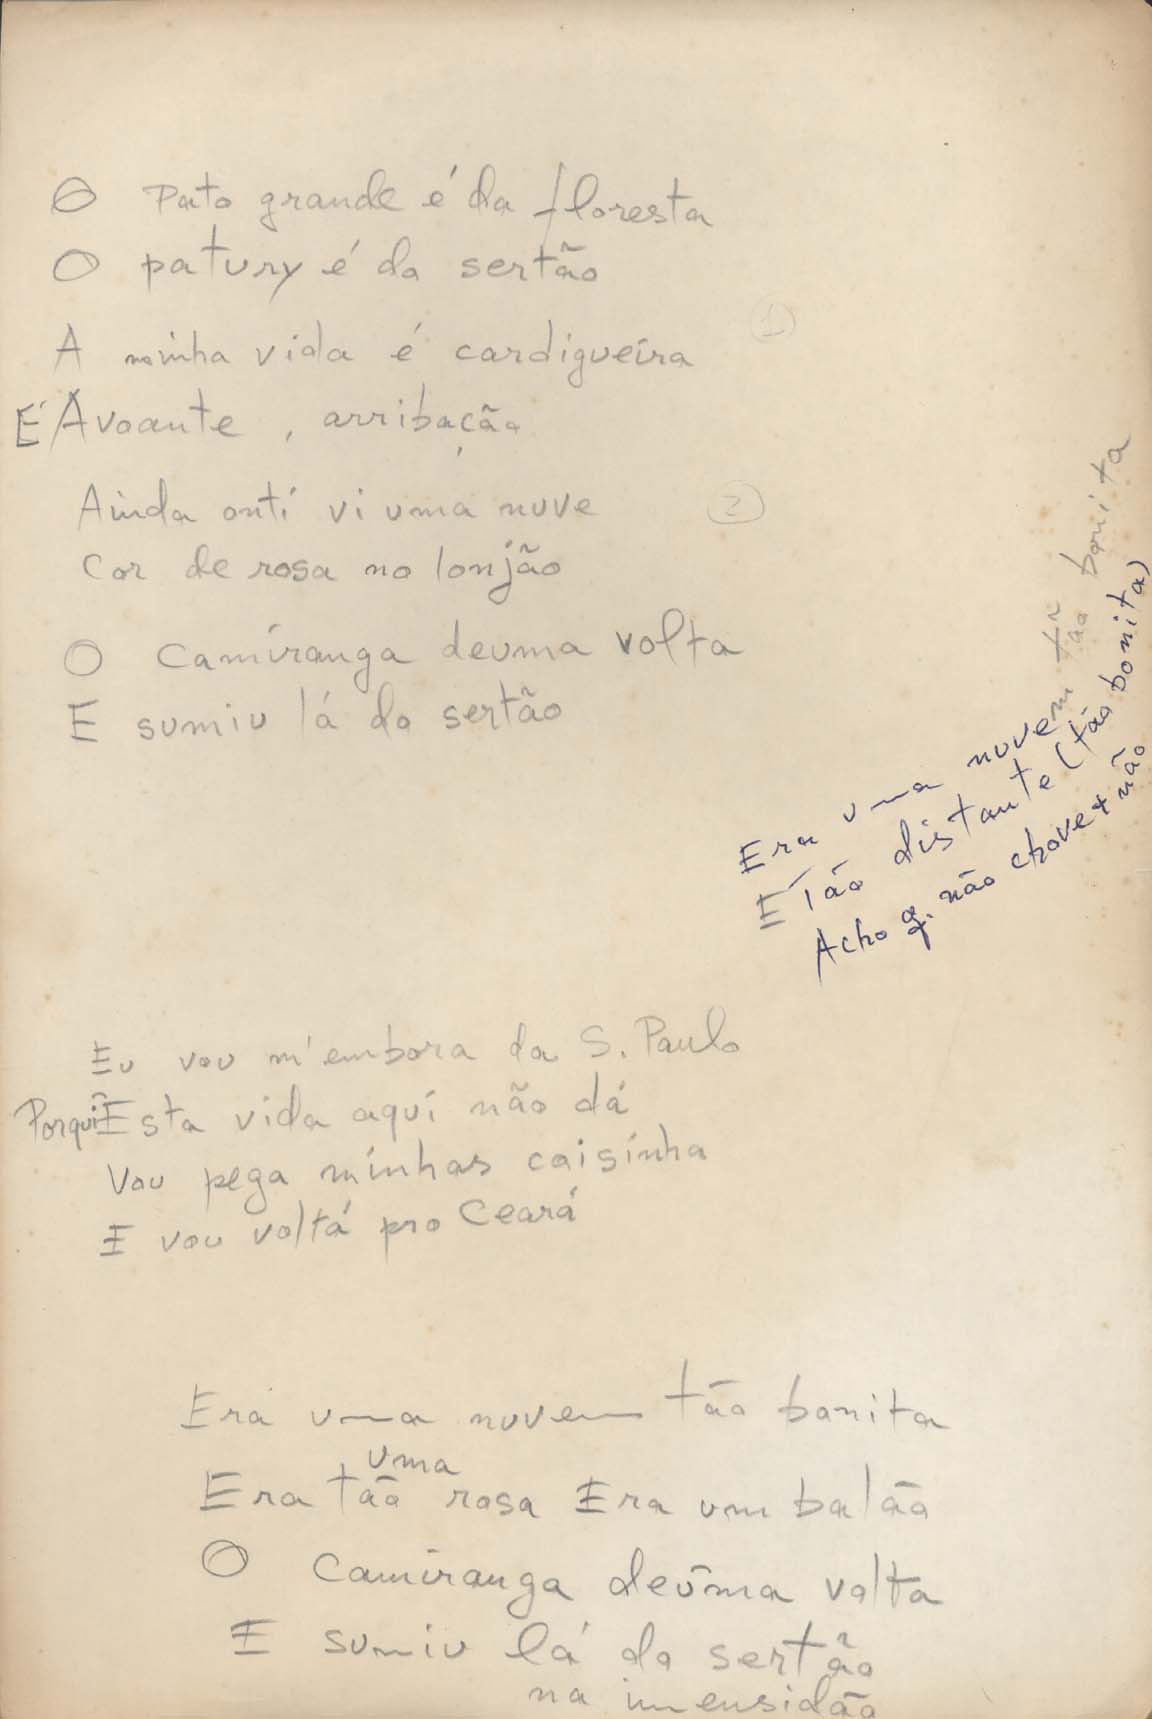 O Pato grande é da floresta
O patury é do sertão
①
A minha vida é cardigueira
É Avoante, arribação
Ainda onti vi uma nuve
②
Cor de rosa no lonjão
O Camiranga deuma volta
E sumiu lá do sertão
Era uma nuvem tão bonita
E Tão distante (tão bonita)
Acho q. não chove + não
Eu vou m'embora da S. Paulo
Porquê Esta vida aqui não dá
Vou pega minhas caisinha
E vou voltá pro Ceará
Era uma nuvem tão bonita
uma
Era tão rosa Era um balão
O Camiranga deuma volta
E sumiu lá do sertão
na imensidão